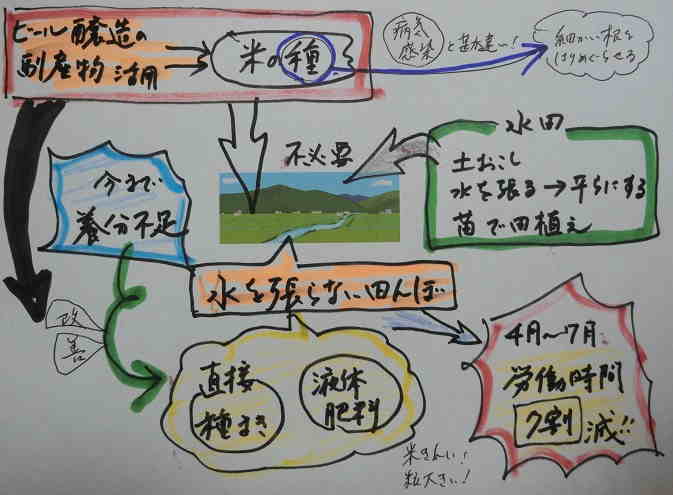 ビール醸造の
副産物活用
米の種
病気
感染
と勘違い!
細かい根を
はりめぐらせる
不必要
水田
土おこし
水を張る→平らにする
苗で田植え
今まで
養分不足
水を張らない田んぼ
改
善
直接
種まき
液体
肥料
4月〜7月
労働時間
7割減!!
米きれい!
粒大きい!